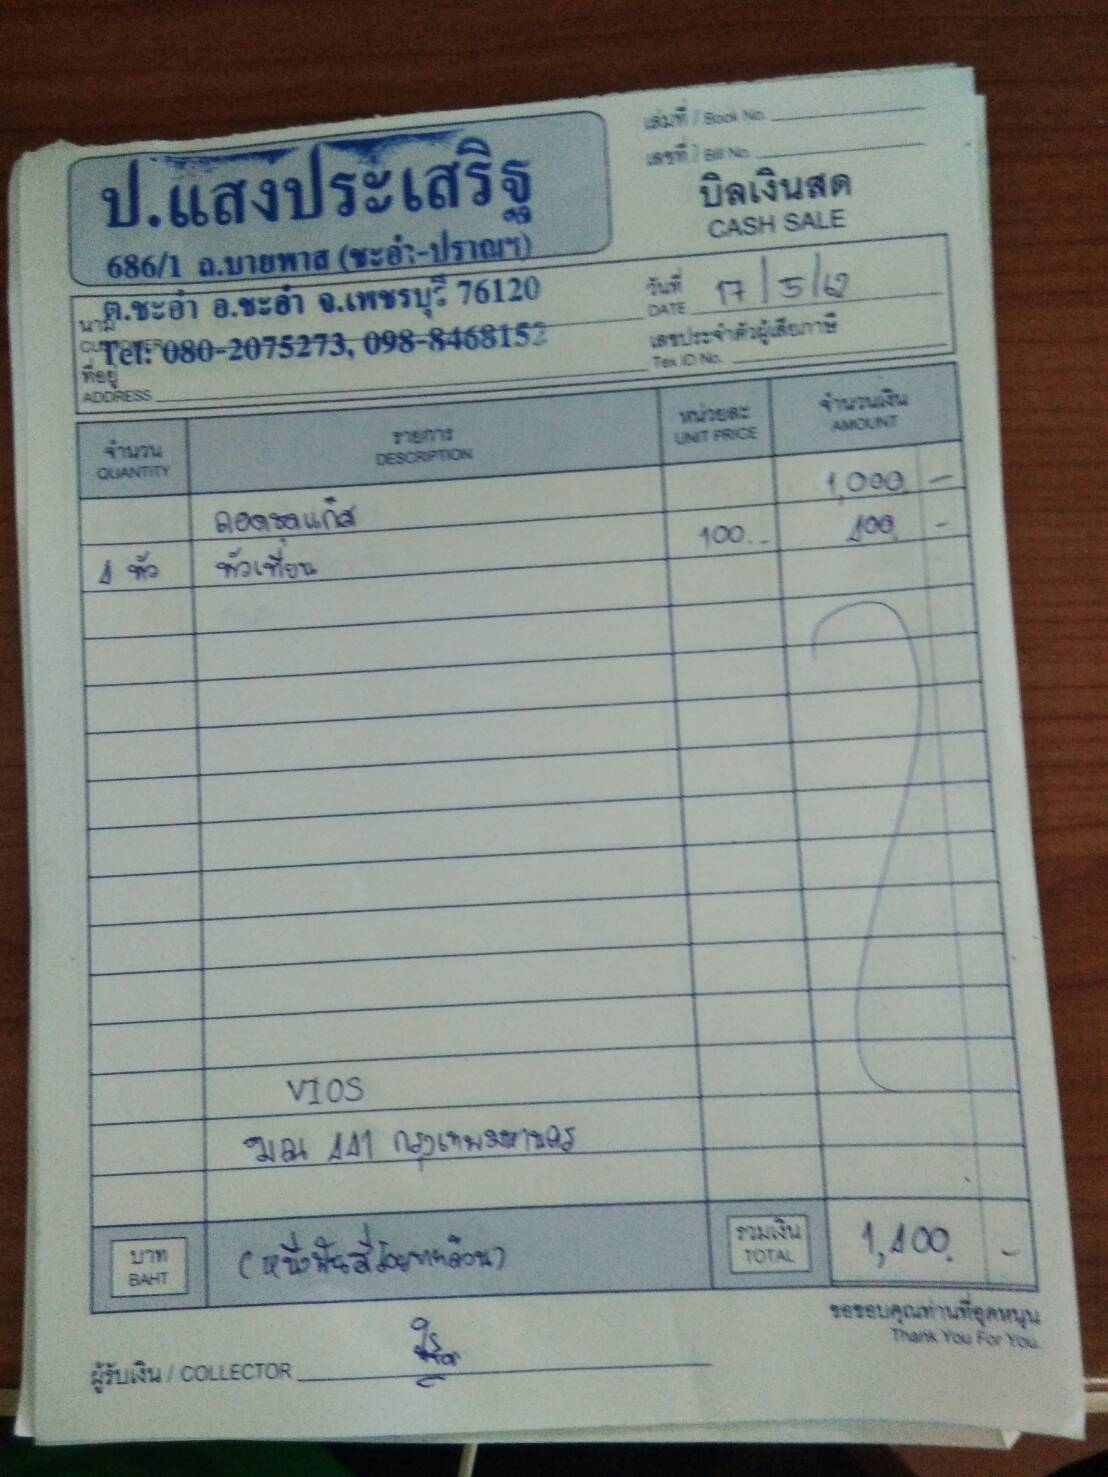 ป.แสงประเสริฐ
686/1 ถ.บายพาส (ชะอำ-ปราณฯ)
ต.ชะอำ อ.ชะอำ จ.เพชรบุรี 76120
Tel: 080-2075273, 098-8468152
เล่มที่ / Book No.
เลขที่ / Bill No.
บิลเงินสด
CASH SALE
นาม
CUSTOMER
ที่อยู่
ADDRESS
วันที่
DATE 17/5/62
เลขประจำตัวผู้เสียภาษี
Tex ID No.
จำนวน รายการ หน่วยละ จำนวนเงิน
QUANTITY DESCRIPTION UNIT PRICE AMOUNT
ถอดชุดแก๊ส 1,000 -
4 หัว หัวเทียน 100.- 400 -
VIOS
441 กรุงเทพมหานคร
บาท (หนึ่งพันสี่ร้อยบาทถ้วน) รวมเงิน 1,400 -
BAHT TOTAL
ขอขอบคุณท่านที่อุดหนุน
Thank You For You.
ผู้รับเงิน / COLLECTOR